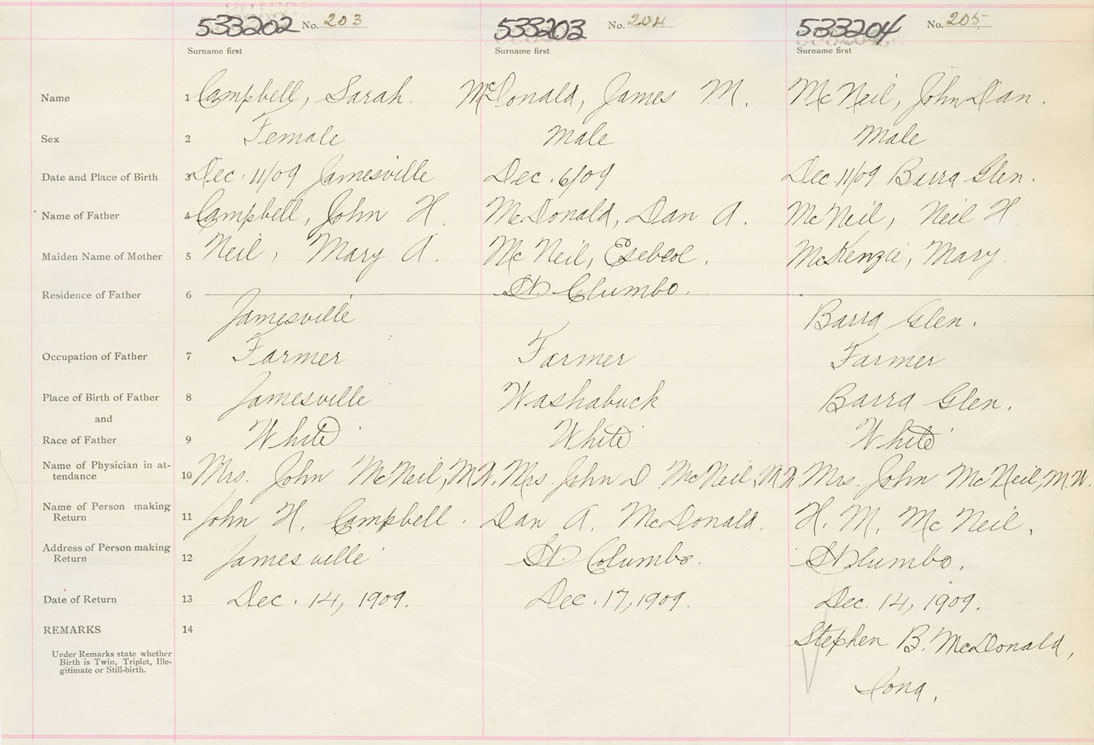 533202 No. 203 533203 No. 204 533204 No. 205
Surname first Surname first Surname first
Name 1 Campbell, Sarah. McDonald, James M. McNeil, John Dan.
Sex 2 Female Male Male
Date and Place of Birth 3 Dec. 11/09 Jamesville Dec. 6/09 Dec 11/09 Barra Glen.
Name of Father 4 Campbell, John H. McDonald, Dan A. McNeil, Neil H
Maiden Name of Mother 5 Neil, Mary A. McNeil, McKenzie, Mary.
St Clumbo.
Residence of Father 6
Jamesville Barra Glen.
Occupation of Father 7 Farmer Farmer Farmer
Place of Birth of Father 8 Jamesville Washabuck Barra Glen.
and
Race of Father 9 White White White
Name of Physician in at-
tendance 10 Mrs. John McNeil, M.W. Mrs. John D McNeil, M.W Mrs. John McNeil, M.W.
Name of Person making
Return 11 John H. Campbell. Dan A. McDonald. H. M. McNeil.
Address of Person making
Return 12 Jamesville St. Columbo. St Clumbo.
Date of Return 13 Dec. 14, 1909. Dec. 17, 1909. Dec. 14, 1909.
REMARKS 14 Stephen B. McDonald,
Under Remarks state whether
Birth is Twin, Triplet, Ille-
gitimate or Still-birth.
Iona.